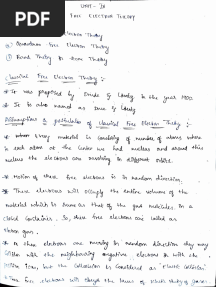 PDF
UNIT - III
FREE ELECTRON THEORY
Electron Theory
② Quantum Free Electron Theory
③ Band Theory or Zone Theory
Classical Free Electron Theory :-
* It was proposed by Drude & Lorentz in the year 1900.
* It is also named as Drude & Lorentz
Assumptions & postulates of classical Free Electron Theory :-
* where every material is consisting of number of atoms where
in each atom at the center we find nucleus and around this
nucleus the electrons are revolving in different orbits.
* Motion of these free electrons is in random direction.
* These electrons will occupy the entire volume of the
material which is same as that of the gas molecules in a
closed container. So, these free electrons are called as
electron gas.
* when electrons are moving in random direction they may
collide with the neighbouring negative electrons or with the
positive ions, but the collision is considered as "elastic collision".
free electrons will obeys the laws of